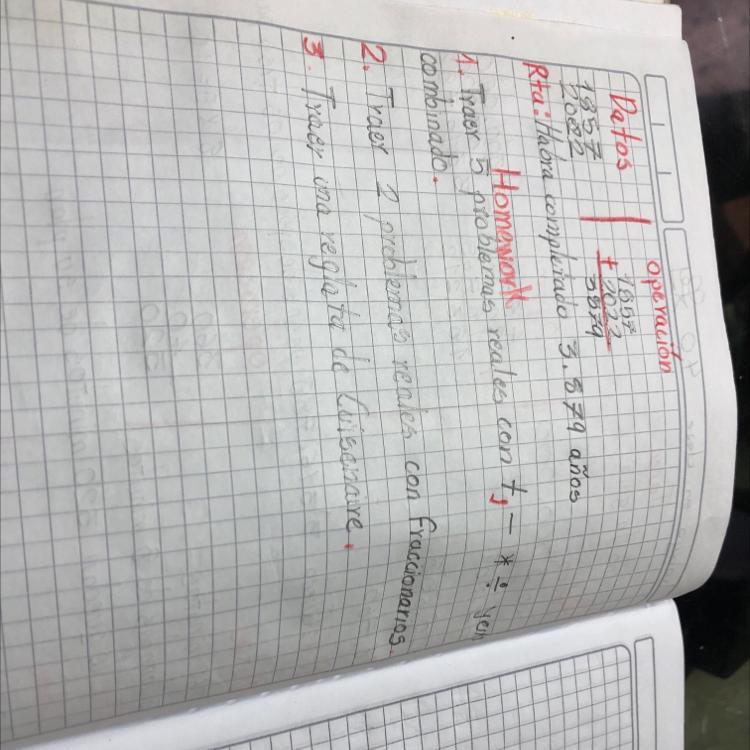 Datos | operación
1857
2022
1857
+ 2022
3879
Rta: Habra completado 3.879 años
Homework
1. Traer 5 problemas reales con +, - * ÷ y en
combinado.
2. Traer 2 problemas reales con fraccionarios.
3. Traer una reglata de Cuisanaire.